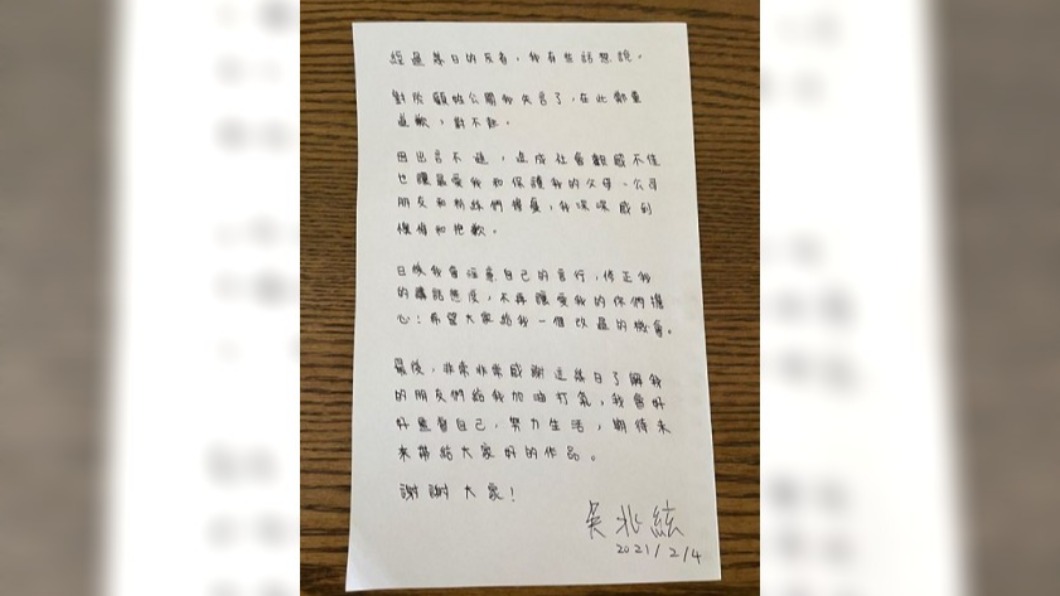 經過幾日的反省，我有些話想說。
對於顧的公開我失言了，在此鄭重
道歉，對不起。
因出言不遜，造成社會觀感不佳
也讓最愛我和保護我的父母、公司
朋友和粉絲們擔憂，我深深感到
懊悔和抱歉。
日後我會注意自己的言行，修正我
的講話態度，不再讓愛我的你們擔
心；希望大家給我一個改過的機會。
最後，非常非常感謝這幾日了解我
的朋友們給我加油打氣，我會好
好監督自己，努力生活，期待未
來帶給大家好的作品。
謝謝大家！
吳兆絃
2021/2/4